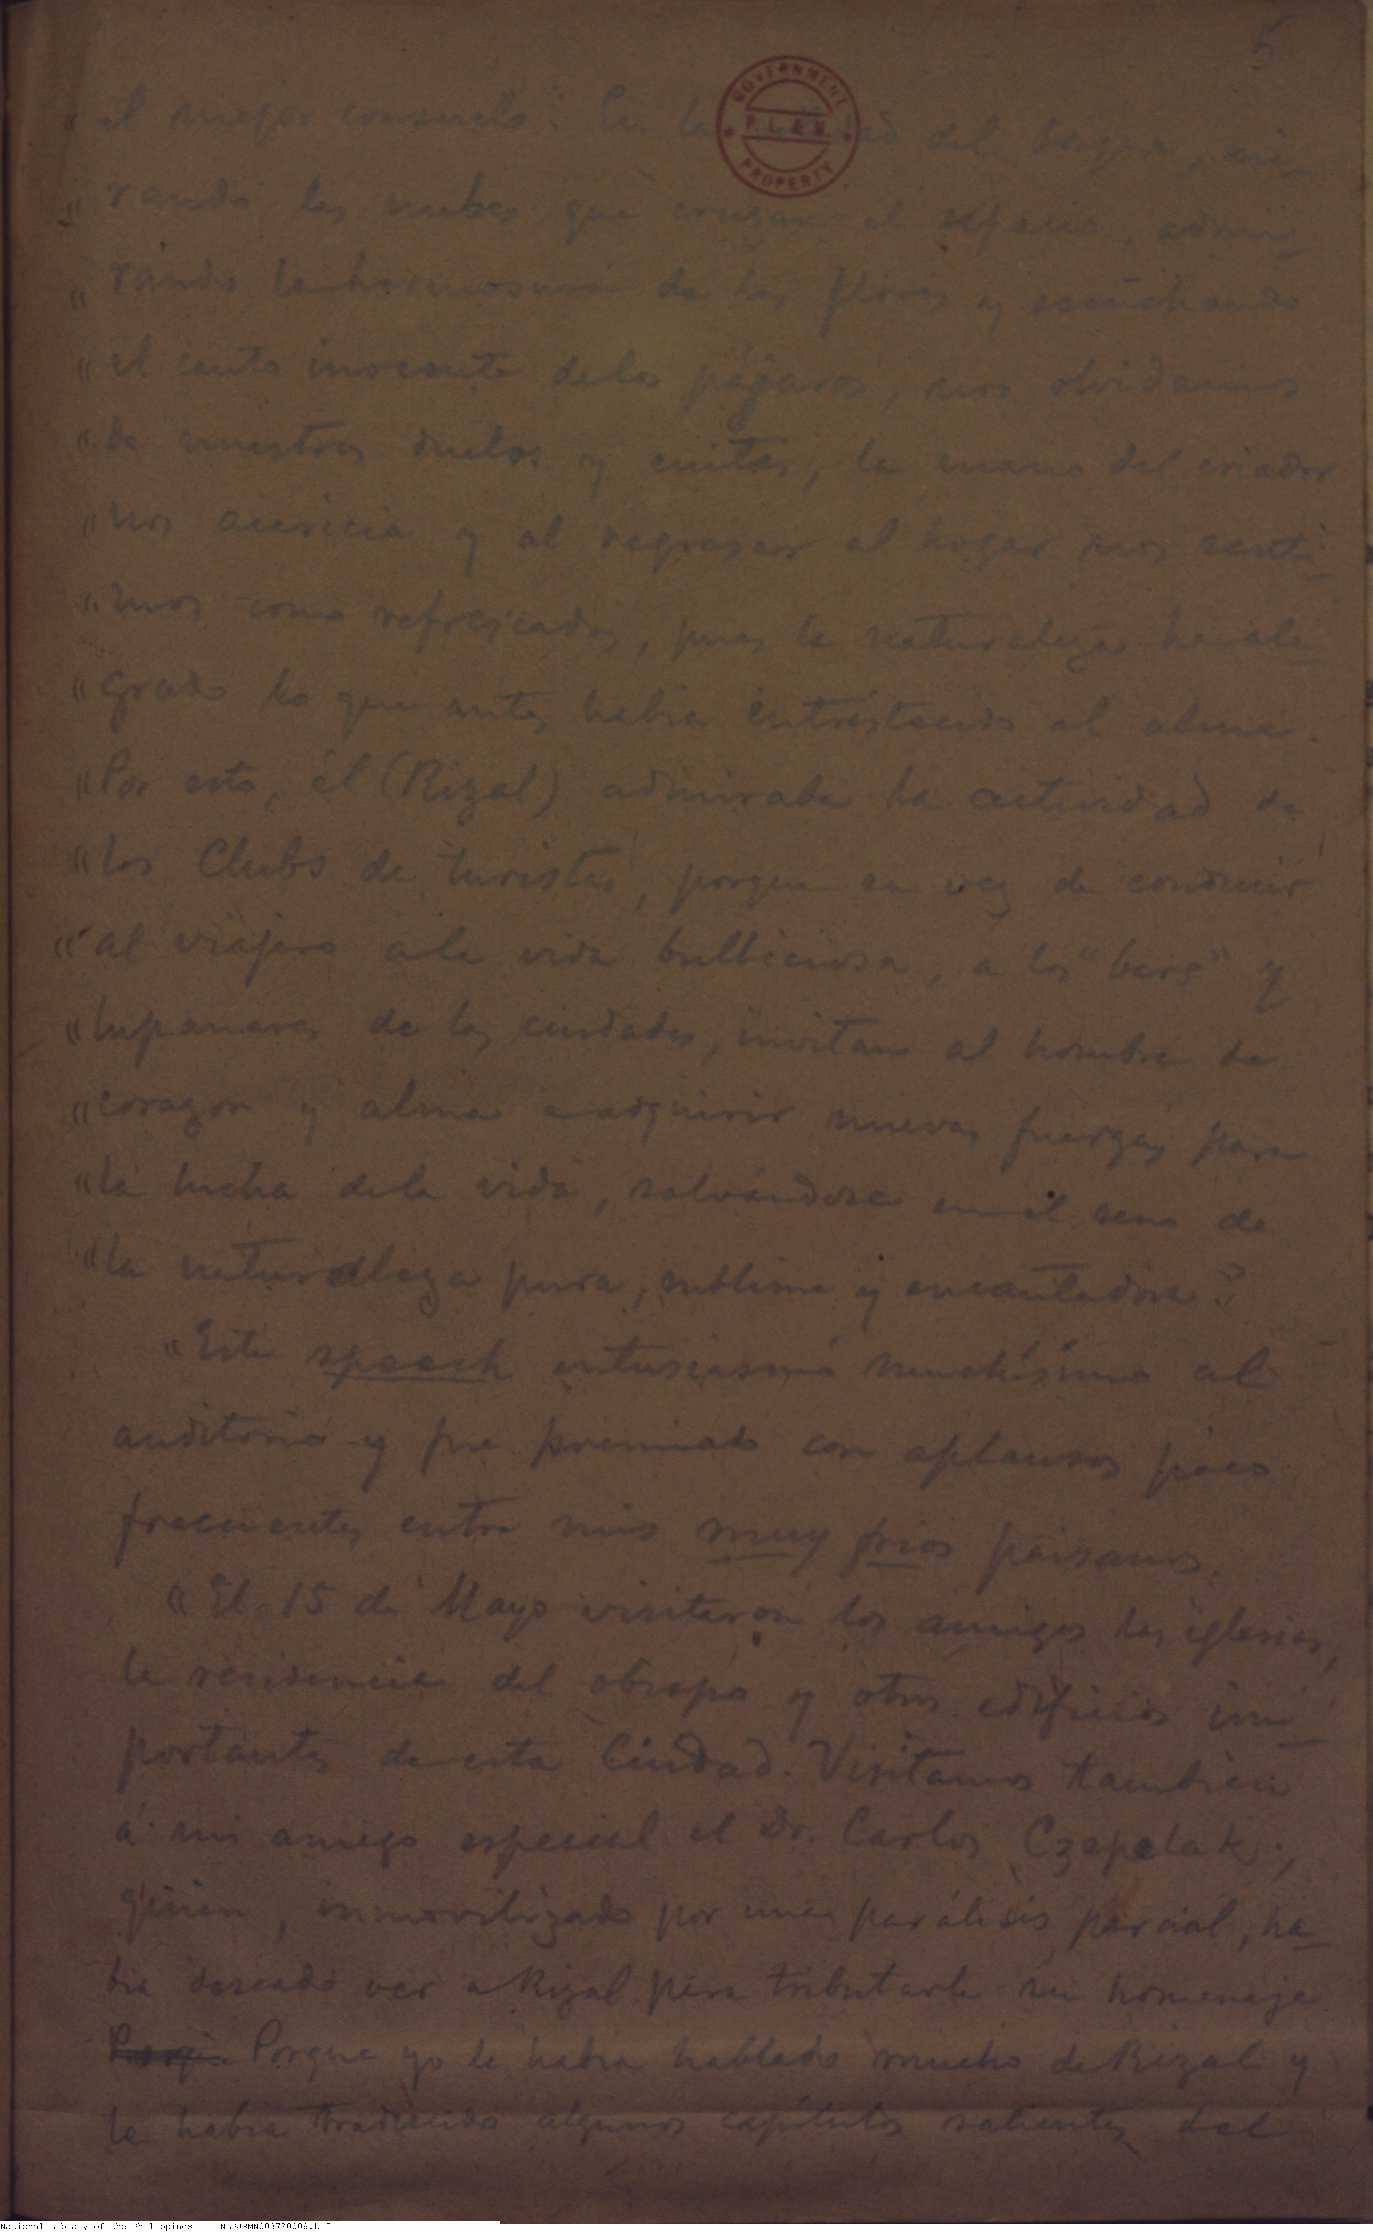 5
GOVERNMENT
P. L. & M.
PROPERTY
"el mejor consuelo. En la del bosque, mi-
"rando las nubes que cruzan el espacio, admi-
"rando la hermosura de las flores y escuchando
"el canto inocente delos pájaros, nos olvidamos
"de nuestros duelos y cuitas, la mano del criador
"nos acaricia y al regresar al hogar nos senti-
"mos como refrescados, pues la naturaleza ha ale-
"grado lo que antes habia entristecido al alma.
"Por esto, él (Rizal) admiraba la actividad de
"los Clubs de turistas, porque en vez de conducir
"al viajero ala vida bulliciosa, a los "bars" y
"lupanares de las ciudades, invitan al hombre de
"corazon y alma a adquirir nuevas fuerzas para
"la lucha dela vida, salvándose en el seno de
"la naturaleza pura, sublime y encantadora"
"Este speech entusiasmó muchísimo al
auditorio y fue premiado con aplausos poco
frecuentes entre mis muy frios paisanos.
"El 15 de Mayo visitaron los amigos las iglesias,
la residencia del obispo y otros edificios im-
portantes de esta Ciudad. Visitamos tambien
á mi amigo especial el Dr. Carlos Czepelak,
quien, inmovilizado por una parálisis parcial, ha-
bia deseado ver a Rizal para tributarle su homenaje
Porque yo le habia hablado mucho de Rizal y
le habia traducido algunos capítulos salientes del
National Library of the Philippines